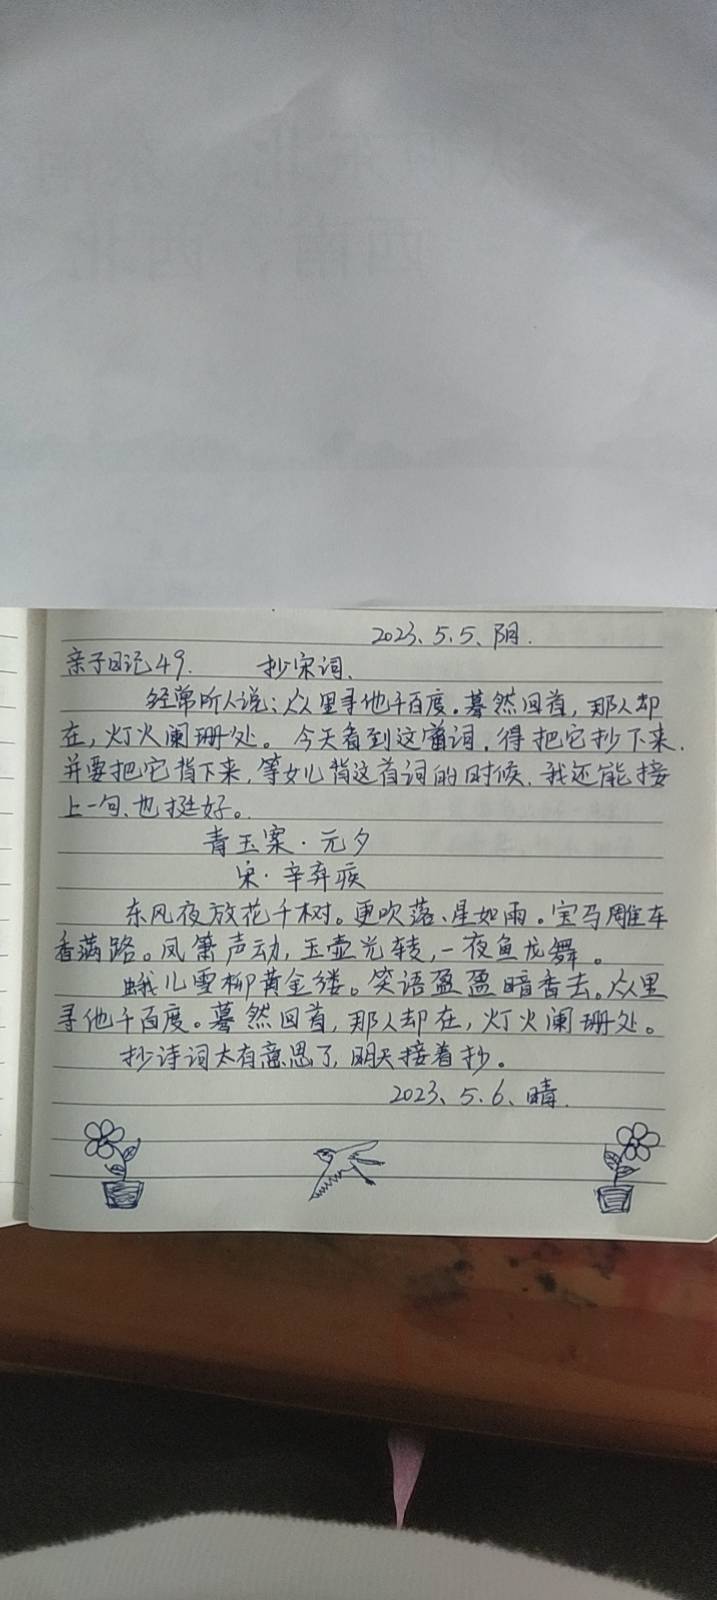 2023、5.5、阴.
亲子日记49. 抄宋词、
经常听人说:众里寻他千百度。蓦然回首,那人却
在,灯火阑珊处。今天看到这首词,得把它抄下来.
并要把它背下来,等女儿背这首词的时候、我还能接
上一句、也挺好。
青玉案·元夕
宋·辛弃疾
东风夜放花千树。更吹落、星如雨。宝马雕车
香满路。凤箫声动,玉壶光转,一夜鱼龙舞。
蛾儿雪柳黄金缕。笑语盈盈暗香去。众里
寻他千百度。蓦然回首,那人却在,灯火阑珊处。
抄诗词太有意思了,明天接着抄。
2023、5.6、晴.